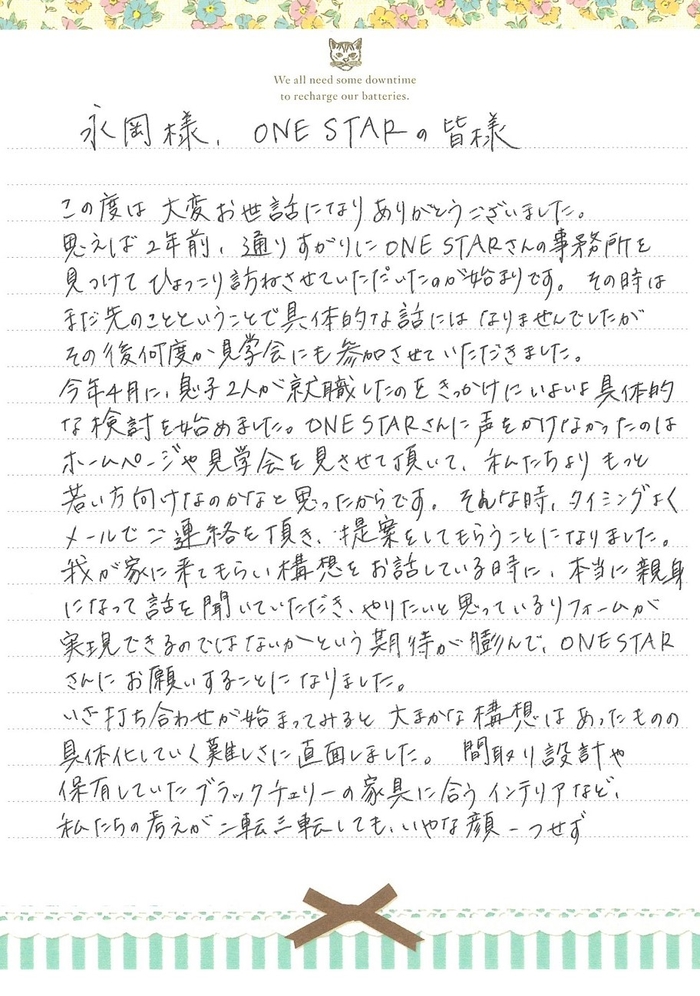 We all need some downtime
to recharge our batteries.
永岡様、ONE STARの皆様
この度は大変お世話になりありがとうございました。
思えば2年前、通りすがりにONE STARさんの事務所を
見つけてひょっこり訪ねさせていただいたのが始まりです。その時は
まだ先のことということで具体的な話にはなりませんでしたが
その後何度か見学会にも参加させていただきました。
今年4月に、息子2人が就職したのをきっかけにいよいよ具体的
な検討を始めました。ONE STARさんに声をかけなかったのは
ホームページや見学会を見させて頂いて、私たちよりもっと
若い方向けなのかなと思ったからです。そんな時、タイミングよく
メールでご連絡を頂き、提案をしてもらうことになりました。
我が家に来てもらい構想をお話している時に、本当に親身
になって話を聞いていただき、やりたいと思っているリフォームが
実現できるのではないかという期待が膨んで、ONE STAR
さんにお願いすることになりました。
いざ打ち合わせが始まってみると大まかな構想はあったものの
具体化していく難しさに直面しました。間取り設計や
保有していたブラックチェリーの家具に合うインテリアなど、
私たちの考えが二転三転しても、いやな顔一つせず